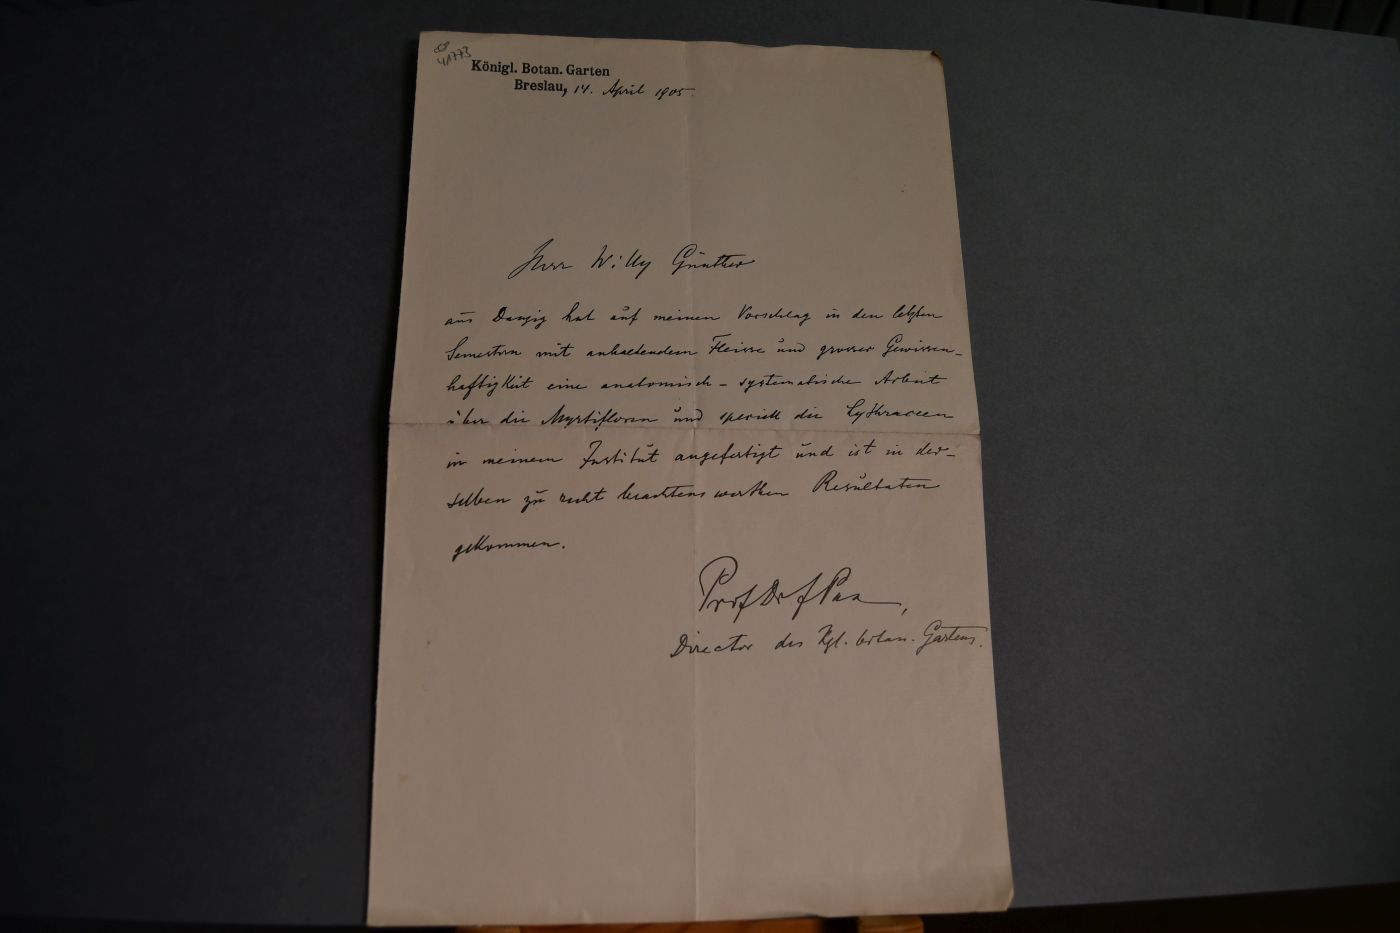 41773
Königl. Botan. Garten
Breslau, 14. April 1905.
Herr Willy Günther
aus Danzig hat auf meinen Vorschlag in den letzten
Semestern mit anhaltendem Fleisse und grosser Gewissen-
haftigkeit eine anatomisch-systematische Arbeit
über die Myrtifloren und speciell die Lythraceen
in meinem Institut angefertigt und ist in der-
selben zu recht beachtenswerthen Resultaten
gekommen.
Prof Dr F Pax,
Director des Kgl. botan. Gartens.